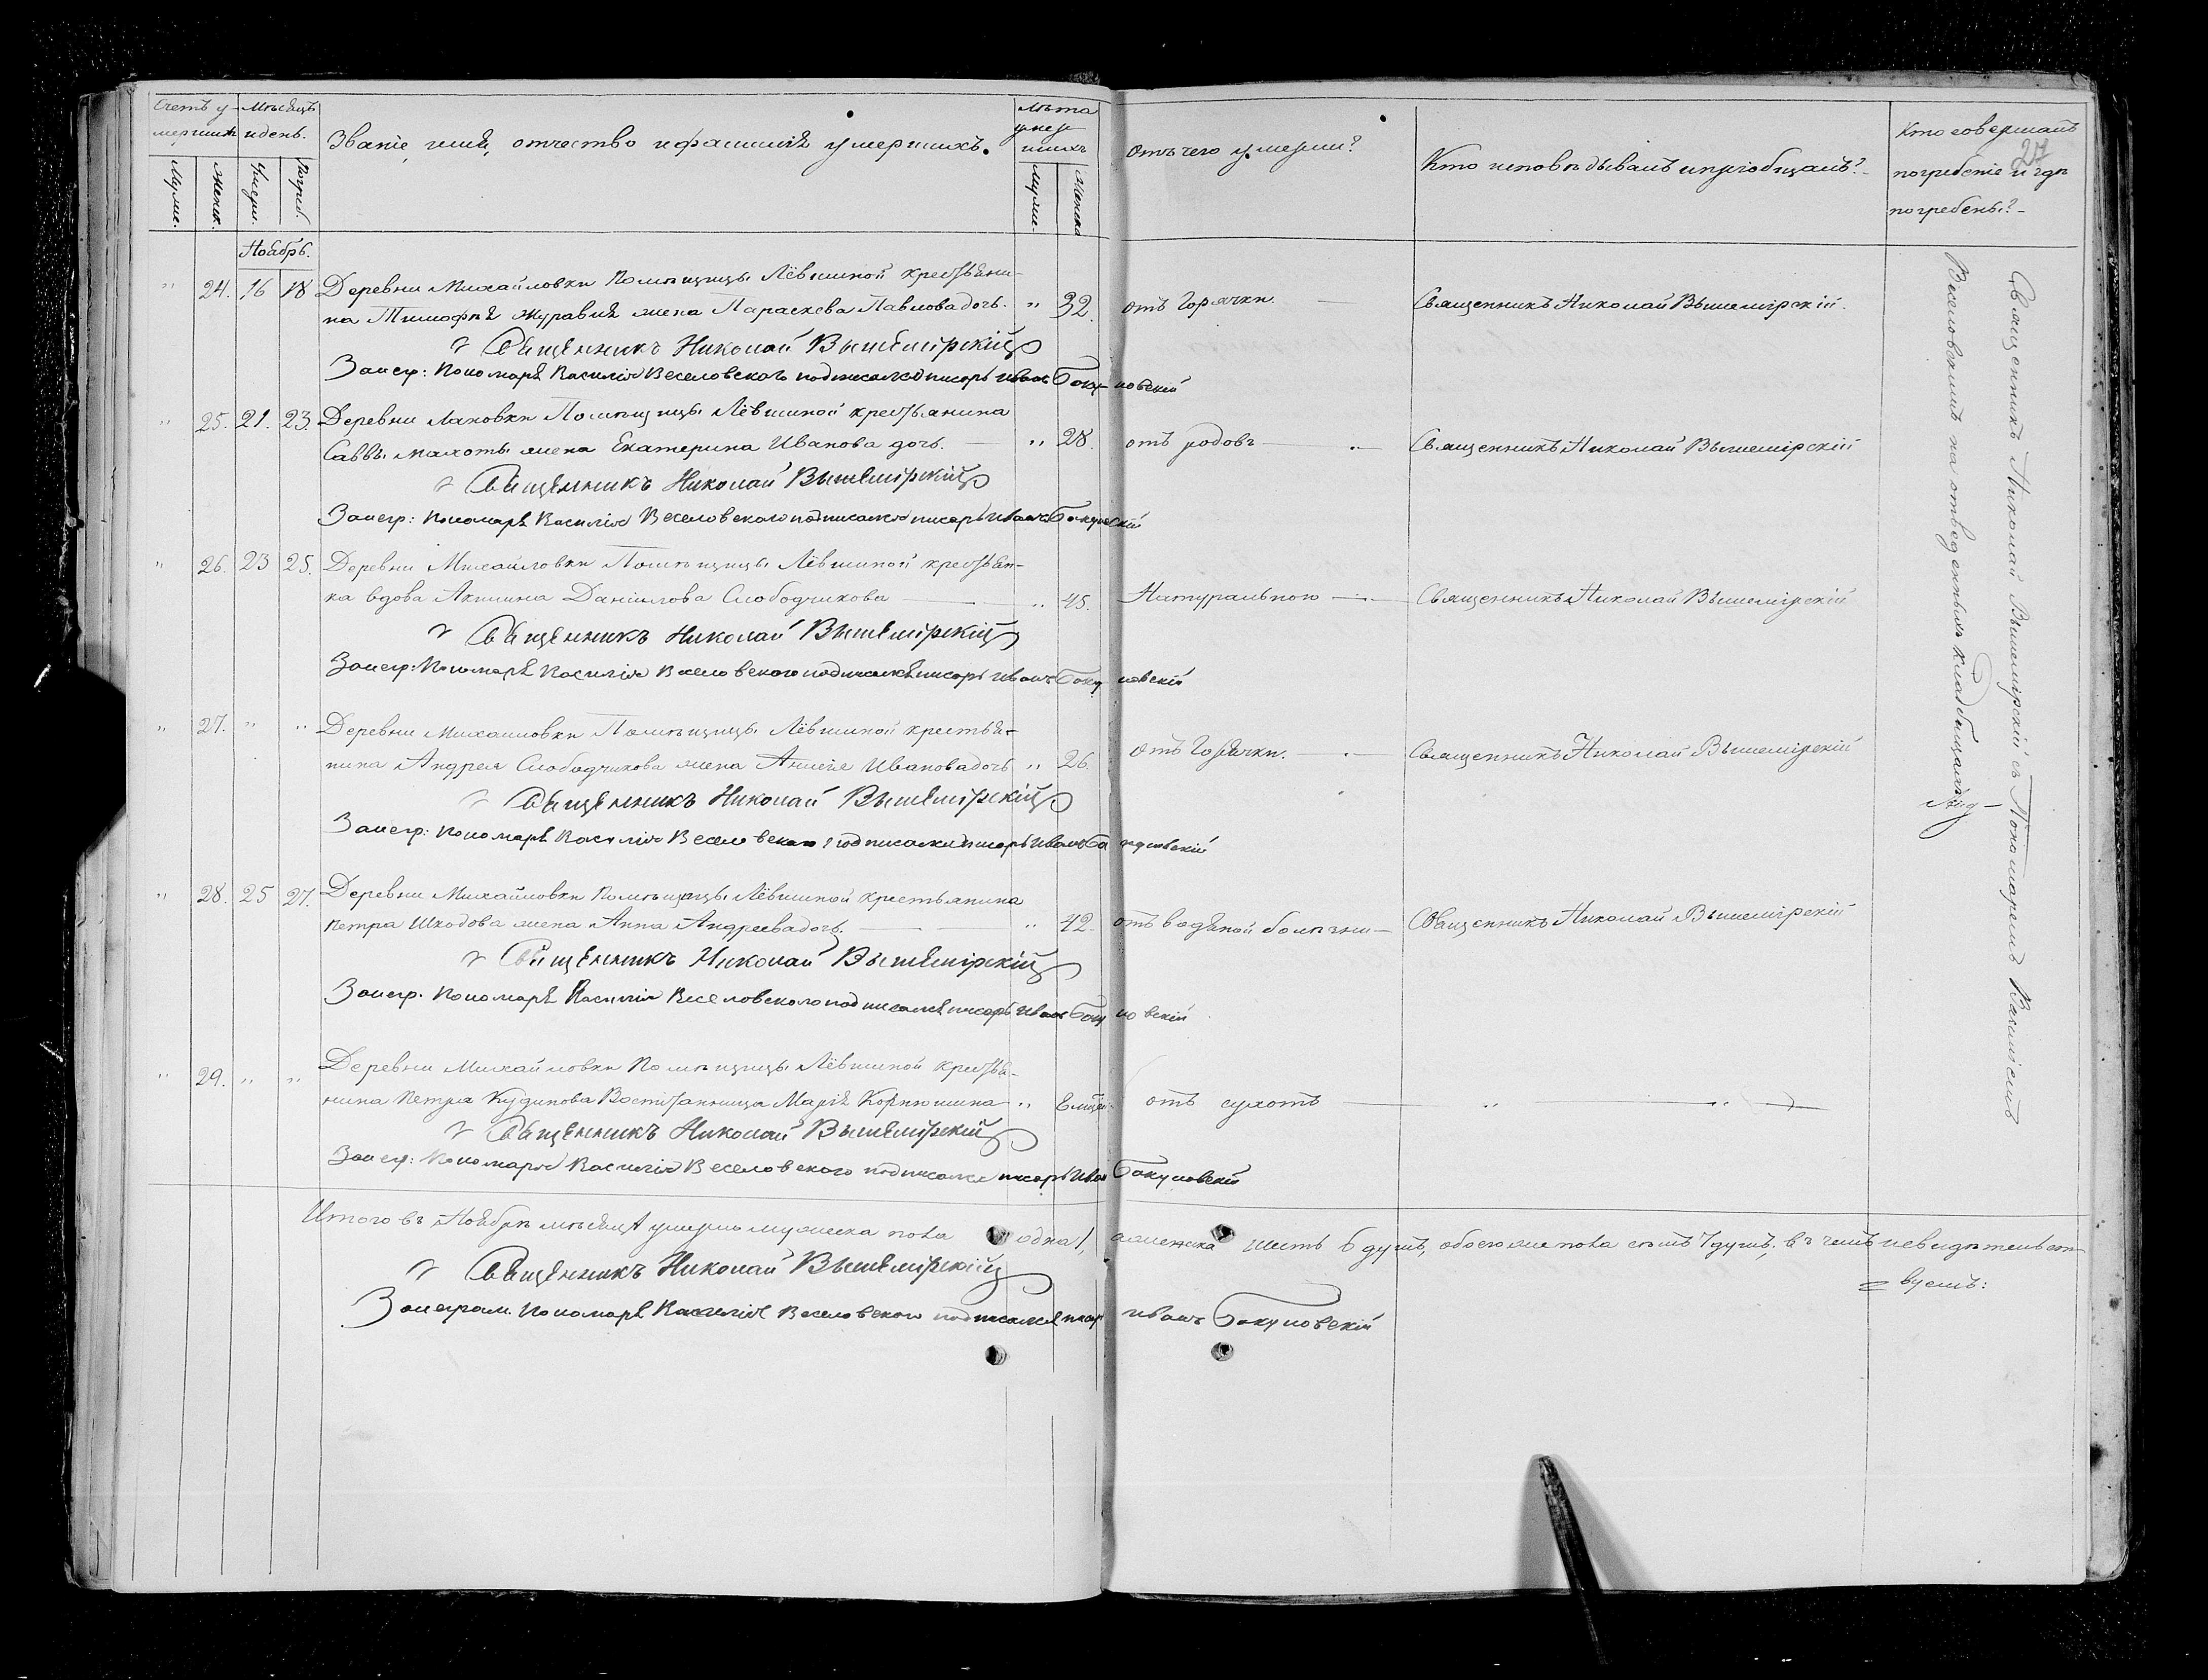 Счетъ у-
мершихъ
Мѣсяцъ
и день.
Званіе, имя, отчество и фамилія умершихъ.
Лѣта
умер
шихъ
Отъ чего умерли?
Кто исповѣдывалъ и пріобщалъ?
Кто совершалъ
погребеніе и гдѣ
погребены?
27
Муже.
Женск.
Умерш.
Погреб.
Муже.
Женска
Ноябрь.
" 24. 16 18 Деревни Михайловки Помѣщицы Лёвшиной крестьяни-
на Тимофѣя Журавля жена Параскева Павлова дочь. " 32. отъ Горячки. Священникъ Николай Вышемірскій.
Священникъ Николай Вышемірскій
Замегр: Пономаря Василія Веселовскаго подписался писарь Иванъ Бокуновскій
" 25. 21. 23. Деревни Маковки Помѣщицы Лёвшиной крестьянина
Саввы Махоты жена Екатерина Иванова дочь. " 28. отъ родовъ Священникъ Николай Вышемірскій
Священникъ Николай Вышемірскій
Замегр: Пономаря Василія Веселовскаго подписался писарь Иванъ Бокуновскій
" 26. 23 25. Деревни Михайловки Помѣщицы Лёвшиной крестьян-
ка вдова Акилина Даніилова Слободчикова " 45. Натуральною Священникъ Николай Вышемірскій
Священникъ Николай Вышемірскій
Замегр: Пономаря Василія Веселовскаго подписался писарь Иванъ Бокуновскій
" 27. " " Деревни Михайловки Помѣщицы Лёвшиной крестья-
нина Андрея Слободчикова жена Анисія Иванова дочь " 26. отъ Горячки. Священникъ Николай Вышемірскій
Священникъ Николай Вышемірскій
Замегр: Пономаря Василія Веселовскаго подписался писарь Иванъ Бокуновскій
" 28. 25 27. Деревни Михайловки Помѣщицы Лёвшиной крестьянина
Петра Шкодова жена Анна Андреева дочь. " 42. отъ водяной болѣзни Священникъ Николай Вышемірскій
Священникъ Николай Вышемірскій
Замегр. Пономаря Василія Веселовскаго подписался писарь Иванъ Бокуновскій
" 29. " " Деревни Михайловки Помѣщицы Лёвшиной крестья-
нина Петра Кудинова Воспитанница Марія Корнюшина " отъ сухотъ " "
Священникъ Николай Вышемірскій
Замегр: Пономаря Василія Веселовскаго подписался писарь Иванъ Бокуновскій
Священникъ Николай Вышемірскій съ Пономаремъ Василіемъ
Веселовскимъ на отведенныхъ кладбищахъ
Итого въ Ноябрѣ мѣсяцѣ умерло мужеска пола одна 1, а женска шесть 6 душъ, обоего же пола семь 7 душъ, въ чемъ и свидѣтельст-
вуемъ:
Священникъ Николай Вышемірскій
Замеграм. Пономаря Василія Веселовскаго подписался писарь Иванъ Бокуновскій